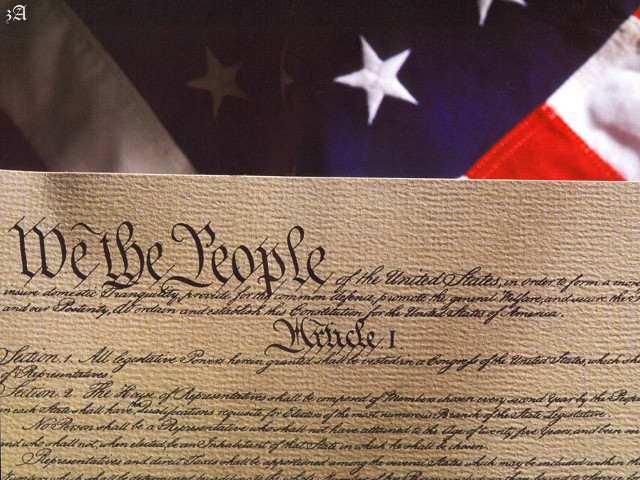 zA
We the People of the United States, in order to form a more
insure domestic Tranquility, provide for the common defence, promote the general Welfare, and secure the
and our Posterity, do ordain and establish this Constitution for the United States of America.
Article I
Section 1. All legislative Powers herein granted shall be vested in a Congress of the United States, which sh
of Representatives.
Section 2. The House of Representatives shall be composed of Members chosen every second Year by the Peop
in each State shall have Qualifications requisite for Electors of the most numerous Branch of the State Legislature.
No Person shall be a Representative who shall not have attained to the Age of twenty five Years, and been
and who shall not, when elected, be an Inhabitant of that State in which he shall be chosen.
Representatives and direct Taxes shall be apportioned among the several States which may be included within